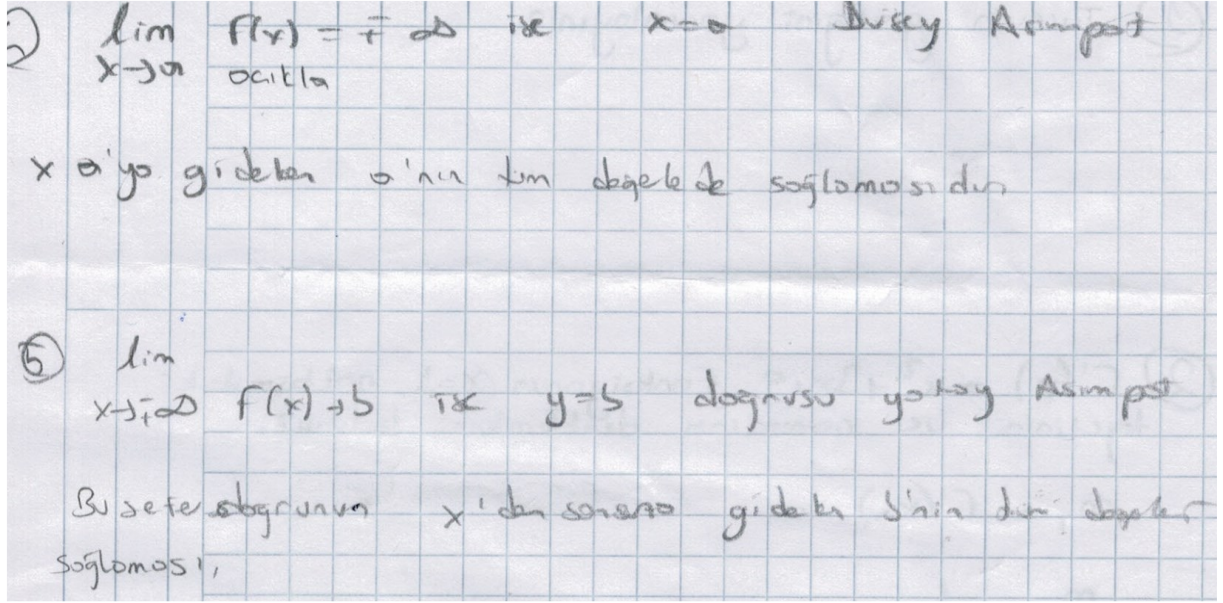 lim f(x) = ∓ ∞ ise x=a Düşey Asimpot
x→a açıkla
x a'ya giderken a'nın tüm değelede sağlamasıdır
5 lim
x→∓∞ f(x)→5 ise y=5 doğrusu yatay Asimpot
Bu sefer doğrunun x'den sonsuza giderken 5'nin tüm değeler
sağlaması,